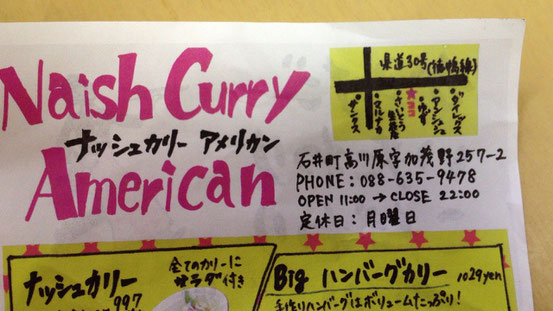 Naish Curry
ナッシュカリー アメリカン
American
県道30号(
石井町高川原字加茂野257-2
PHONE:088-635-9478
OPEN 11:00 → CLOSE 22:00
定休日:月曜日
ナッシュカリー
997
全てのカリーに
サラダ付き
Big ハンバーグカリー 1029yen
手作りハンバーグはボリュームたっぷり!